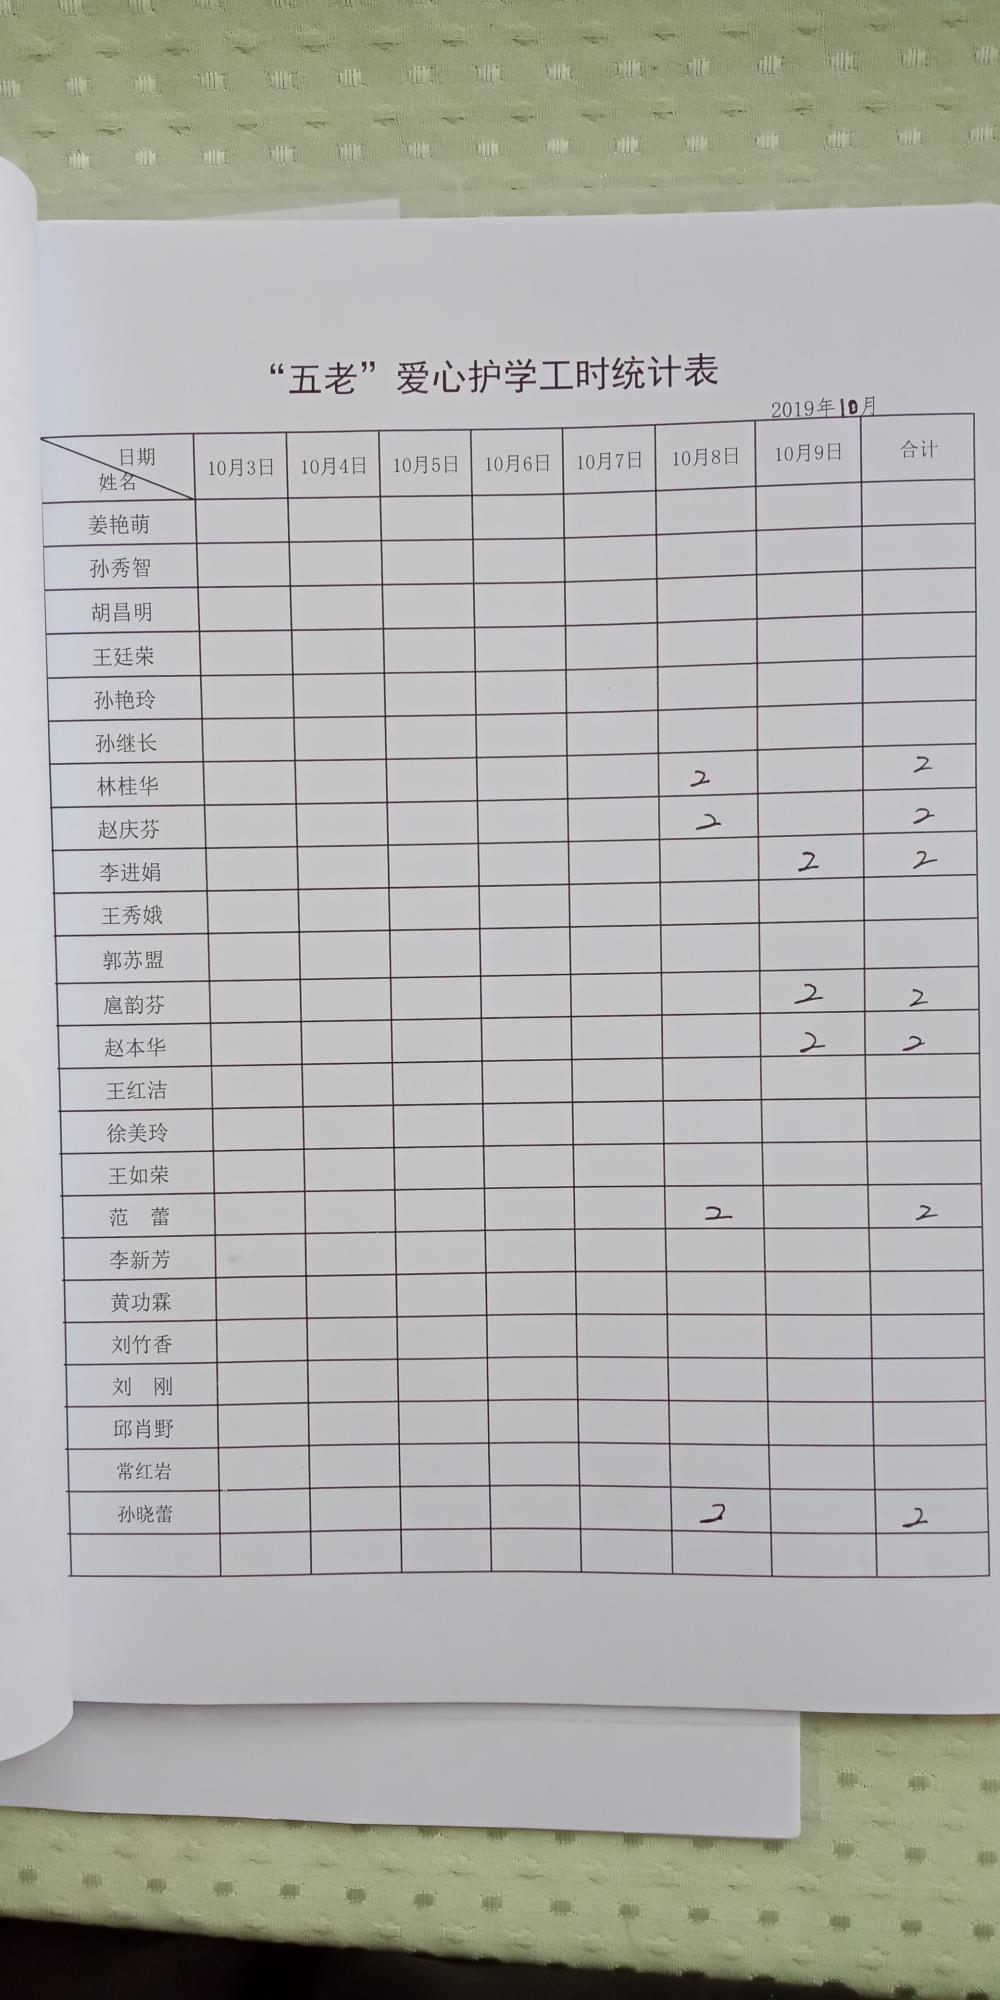 “五老”爱心护学工时统计表
2019年10月
日期 姓名 10月3日 10月4日 10月5日 10月6日 10月7日 10月8日 10月9日 合计
姜艳萌
孙秀智
胡昌明
王廷荣
孙艳玲
孙继长
林桂华 2 2
赵庆芬 2 2
李进娟 2 2
王秀娥
郭苏盟
扈韵芬 2 2
赵本华 2 2
王红洁
徐美玲
王如荣
范 蕾 2 2
李新芳
黄功霖
刘竹香
刘 刚
邱肖野
常红岩
孙晓蕾 2 2